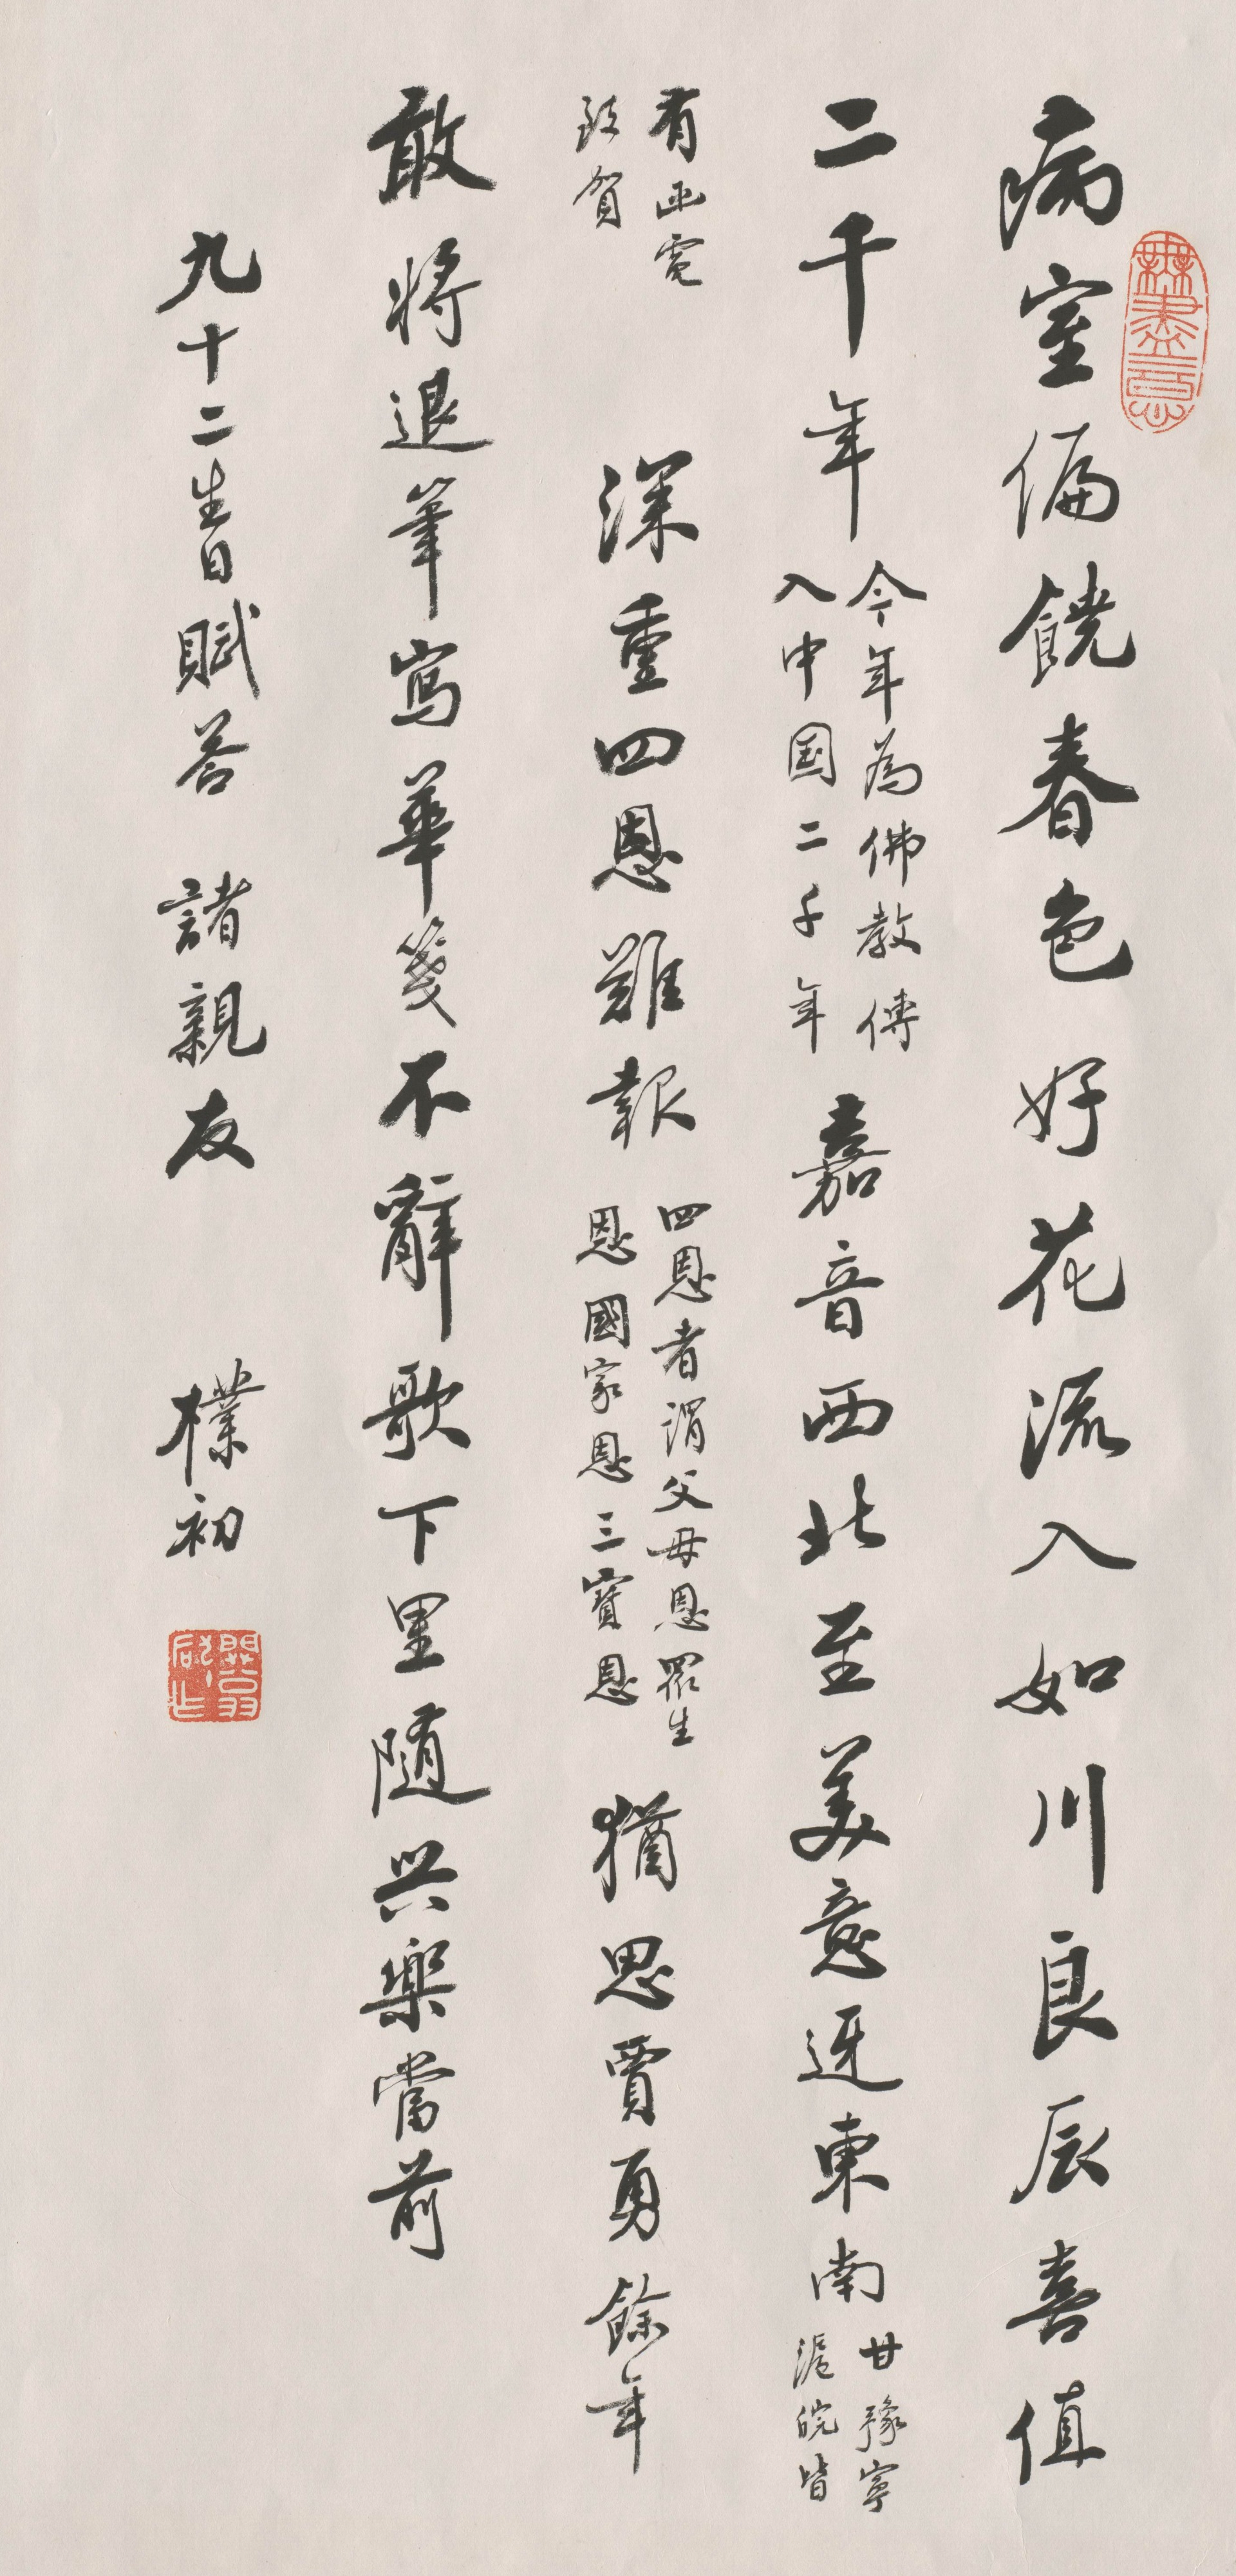 病室偏饒春色好花流入如川良辰喜值
二千年
今年為佛教傳
入中国二千年
嘉音西北至美意迓東南
甘豫寧
滬皖皆
有函電
致賀
深重四恩難報
四恩者謂父母恩眾生
恩國家恩三寶恩
猶思賈勇餘年
敢將退筆寫華箋不辭歌下里随兴樂當前
九十二生日賦荅 諸親友 樸初
無盡意